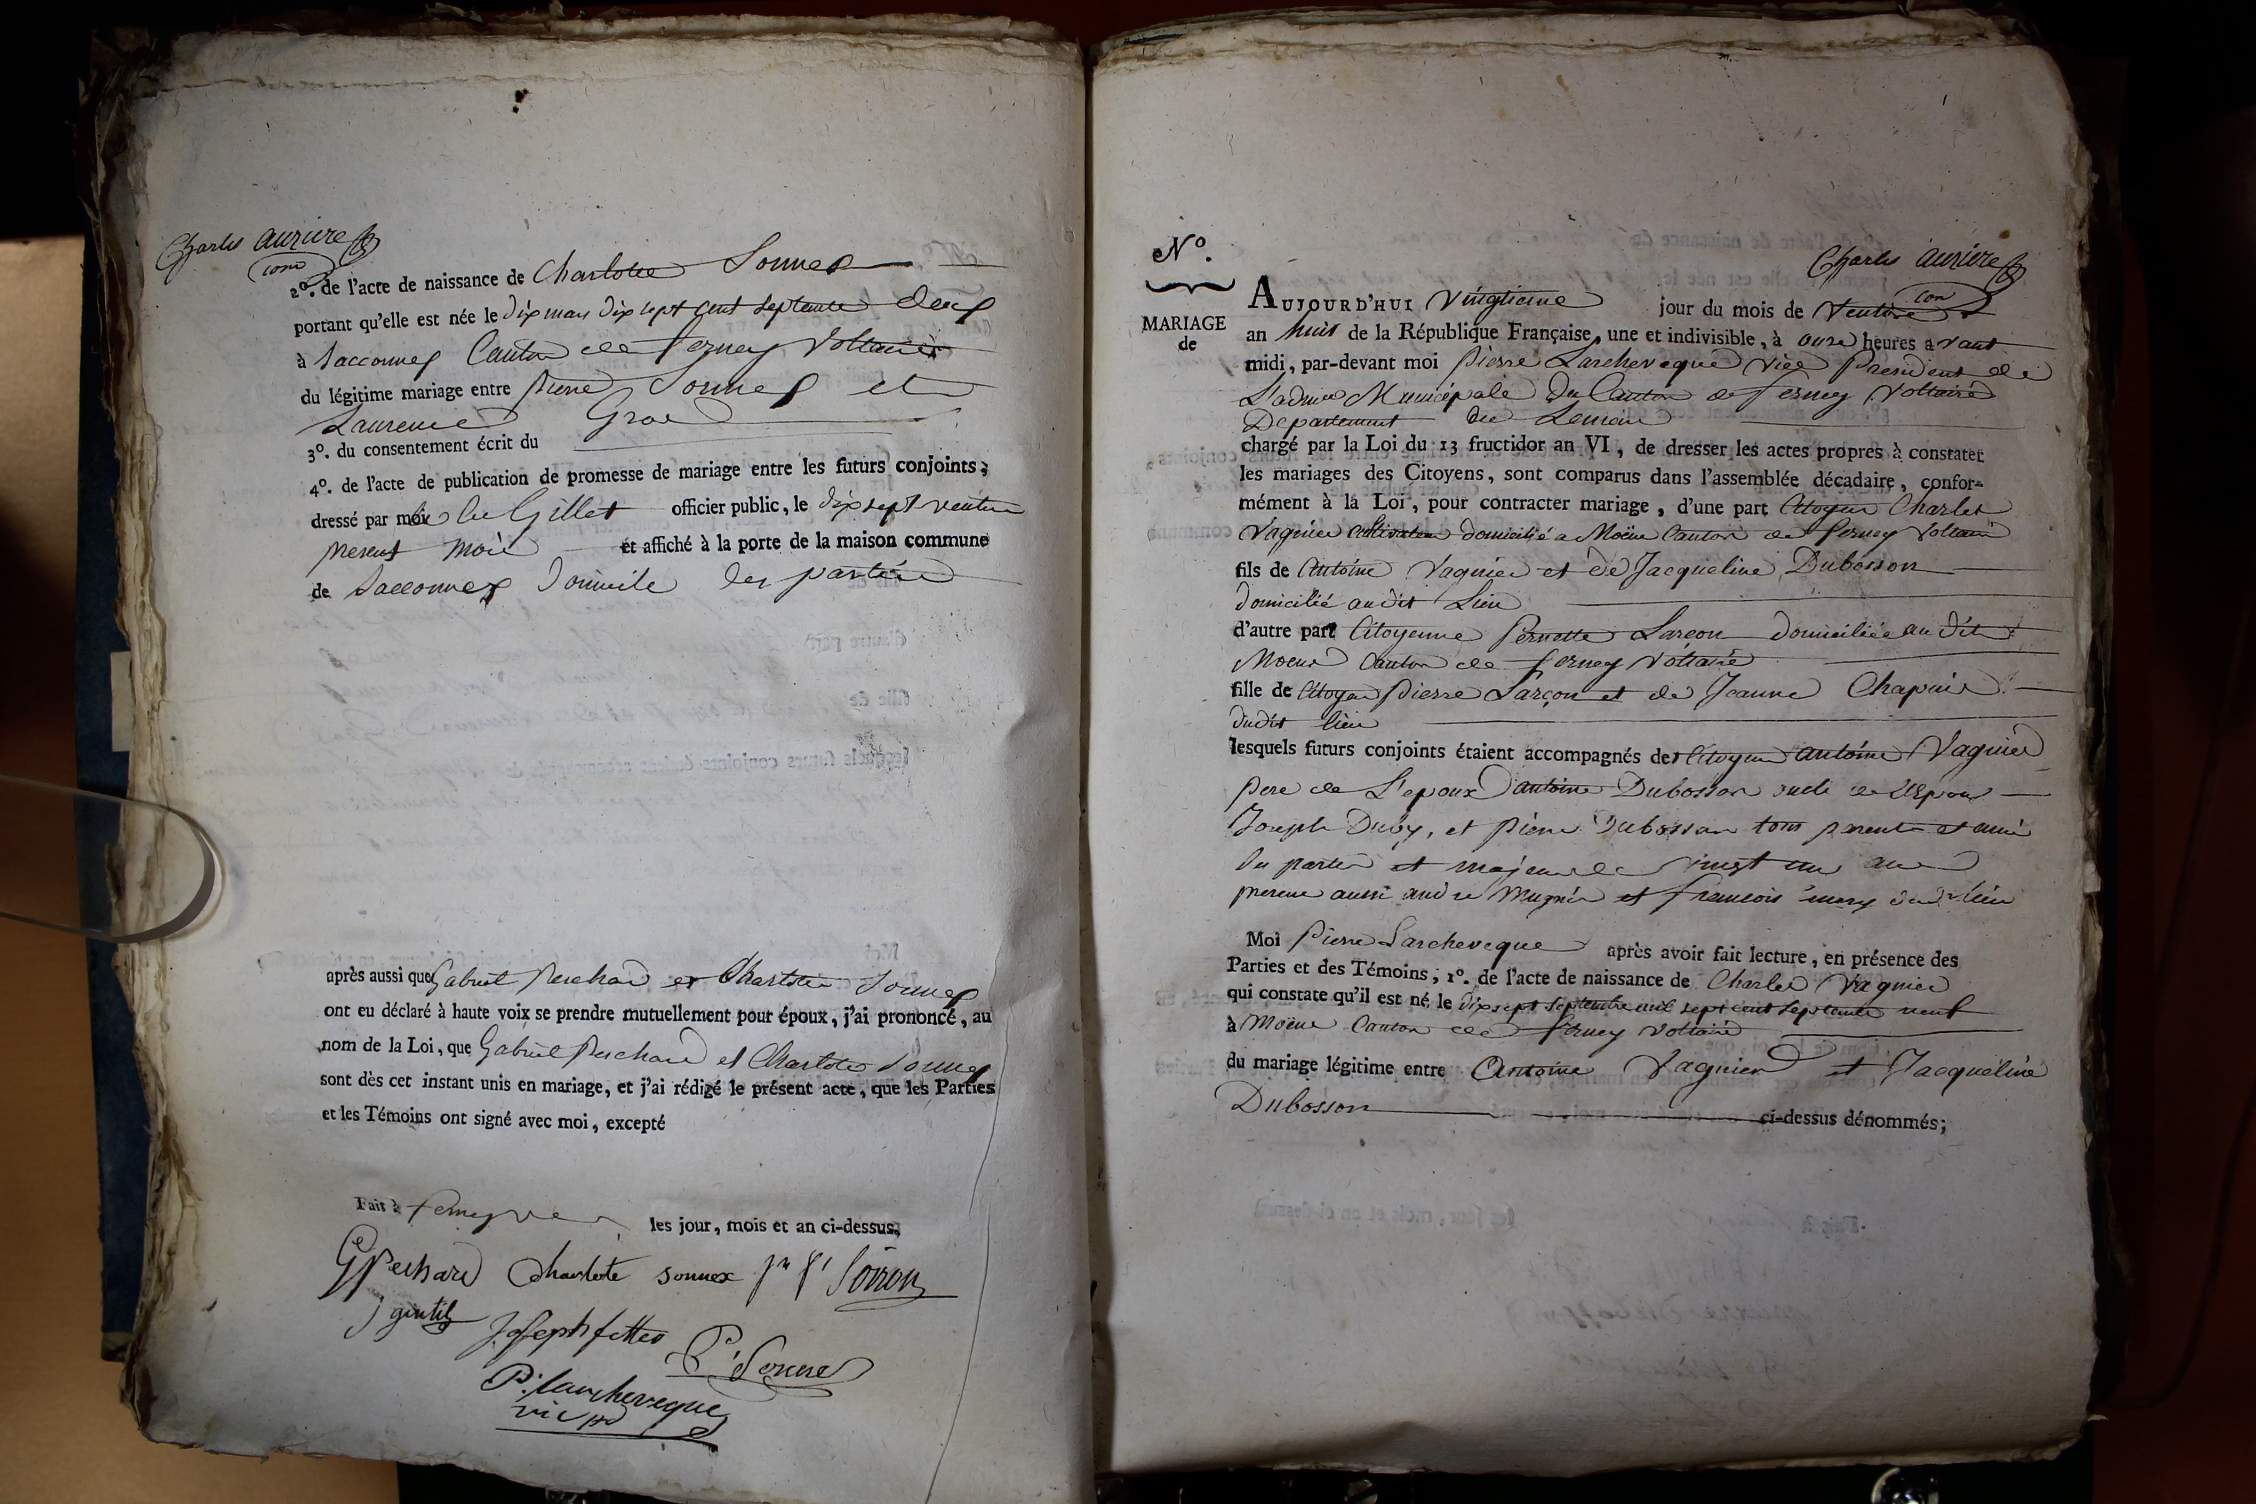 Charles auziere
com
2º. de l'acte de naissance de Charlotte Sonnex
portant qu'elle est née le dix mars dix sept cent septante deux
à Sacconnex Canton de Ferney Voltaire
du légitime mariage entre Pierre Sonnex et
Laurence Gros
3º. du consentement écrit du
4º. de l'acte de publication de promesse de mariage entre les futurs conjoints;
dressé par moi Gillet officier public, le dix sept ventose
present mois et affiché à la porte de la maison commune
de Sacconnex Domicile des parties
après aussi que Gabriel Perchard et Charlotte Sonnex
ont eu déclaré à haute voix se prendre mutuellement pour époux, j'ai prononcé, au
nom de la Loi, que Gabriel Perchard et Charlotte Sonnex
sont dès cet instant unis en mariage, et j'ai rédigé le présent acte, que les Parties
et les Témoins ont signé avec moi, excepté
Fait à Ferney les jour, mois et an ci-dessus,
G Pechard Charlote sonnex Soiron
J gentil Joseph fetter
P. Sonnex
P. Larcheveque
vic pd
Nº.
MARIAGE
de
Charles auziere
com
AUJOURD'HUI Vingtieme jour du mois de Ventose
an huit de la République Française, une et indivisible, à onze heures avant
midi, par-devant moi Pierre Larcheveque Vice President de
L'admon Municipale du Canton de Ferney Voltaire
Departement du Leman
chargé par la Loi du 13 fructidor an VI, de dresser les actes propres à constater
les mariages des Citoyens, sont comparus dans l'assemblée décadaire, confor-
mément à la Loi, pour contracter mariage, d'une part Citoyen Charles
Vagnier Cultivateur domicilié a Moëns Canton de Ferney Voltaire
fils de Antoine Vagnier et de Jacqueline Dubosson
domicilié audit Lieu
d'autre part Citoyenne Pernette Larçon domiciliée au dit
Moens Canton de Ferney Voltaire
fille de Citoyen Pierre Larçon et de Jeanne Chapuis
dudit lieu
lesquels futurs conjoints étaient accompagnés des Citoyens antoine Vagnier
pere de L'epoux antoine Dubosson oncle de L'Epoux
Joseph Duby, et Pierre Dubosson tous parents et amis
des parties et majeurs de vingt un ans
presens aussi andre Mugnier et francois emery dudit lieu
Moi Pierre Larcheveque après avoir fait lecture, en présence des
Parties et des Témoins; 1º. de l'acte de naissance de Charles Vagnier
qui constate qu'il est né le dix sept septembre mil sept cent septante neuf
à Moëns Canton de Ferney Voltaire
du mariage légitime entre Antoine Vagnier et Jacqueline
Dubosson ci-dessus dénommés;